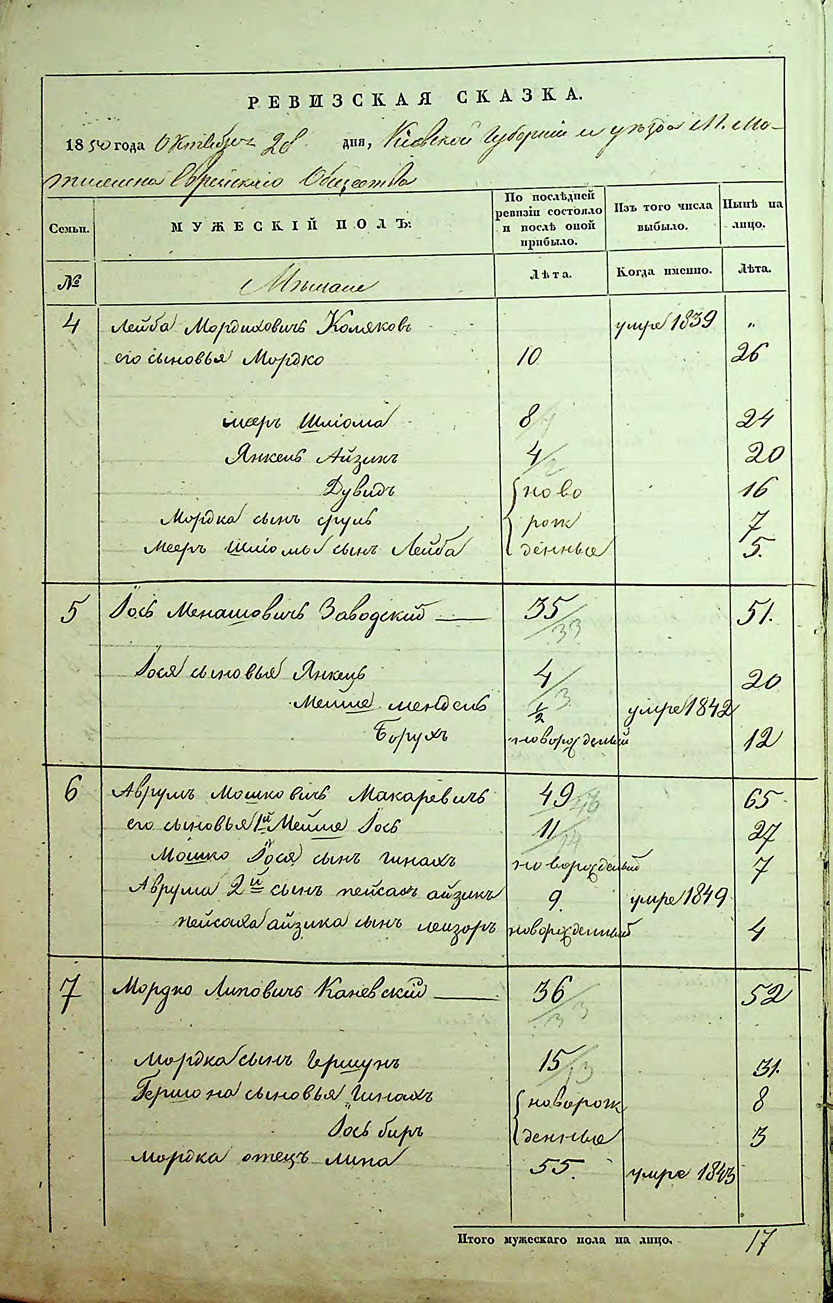 РЕВИЗСКАЯ СКАЗКА.
1850 года Октября 28 дня, Кіевской Губерніи и уѣзда М. Мо-
тижена Еврейскаго Общества
Семьи. МУЖЕСКІЙ ПОЛЪ: По послѣдней ревизіи состояло и послѣ оной прибыло. Изъ того числа выбыло. Нынѣ на лицо.
№ Мѣщане Лѣта. Когда именно. Лѣта.
4 Лейба Мордиховичъ Коляковъ умре 1839 „
его сыновья Мордко 10 26
мееръ Шліома 8 24
Янкель Айзикъ 4/2 20
Дувидъ ново 16
Мордка сынъ сруль рож 7
Мееръ Шліомы сынъ Лейба денные 5.
5 Іось Менашовичъ Заводскій 35/33 51.
Іося сыновья Янкель 4/3 20
Мейше мендель 1/2 умре 1842
Борухъ новорожденый 12
6 Аврумъ Мошковичъ Макаревичъ 49 65
его сыновья 1й Мейше Іось 11/14 27
Мошко Іося сынъ гинахъ новорожденый 7
Аврума 2й сынъ пейсахъ айзикъ 9. умре 1849
пейсаха айзика сынъ лейзоръ новорожденный 4
7 Мордко Липовичъ Каневскій 36/33 52
Мордка сынъ Гершунъ 15/13 31.
Гершона сыновья гинахъ новорож 8
Іось биръ денные 3
Мордка отецъ липа 55. умре 1843
Итого мужескаго пола на лицо. 17